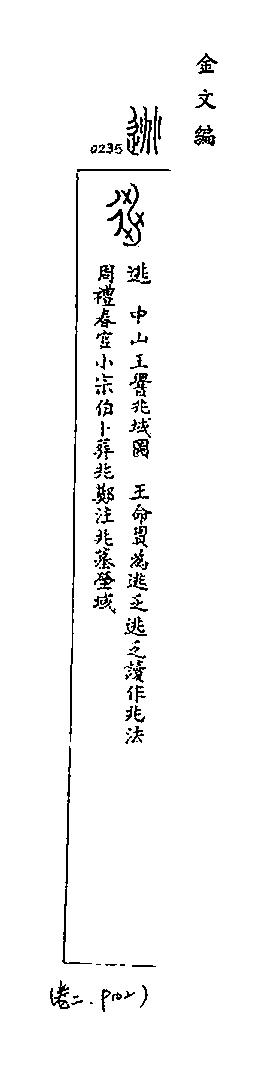 金文編
0235
逃 中山王𰯼兆域圖 王命賈為逃乏逃乏讀作兆法
周禮春官小宗伯卜葬兆鄭注兆墓塋域
(卷二.P102)